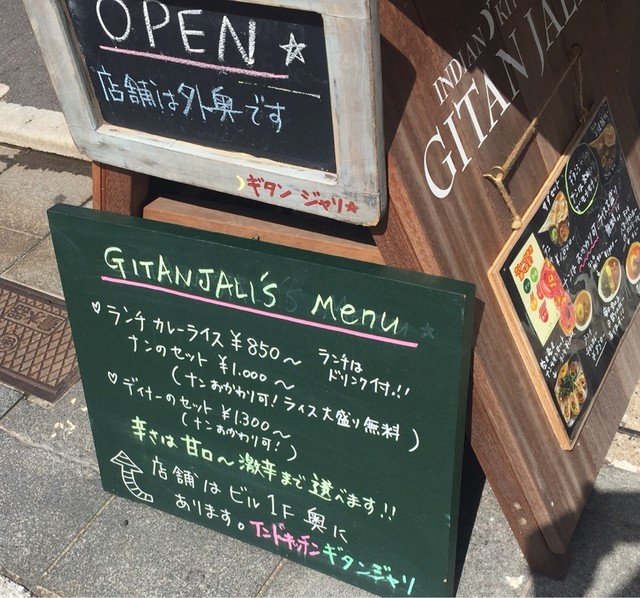 OPEN☆
店舗は外奥です
ギタンジャリ★
INDIAN KIT
GITANJALI
GITANJALI'S Menu
♡ランチ カレーライス ¥850〜
ナンのセット ¥1.000〜
ランチは
ドリンク付!!
(ナンおかわり可!ライス大盛り無料)
♡ディナーのセット ¥1300〜
(ナンおかわり可!)
辛さは甘口〜激辛まで選べます!!
店舗はビル1F奥に
あります。インドキッチンギタンジャリ